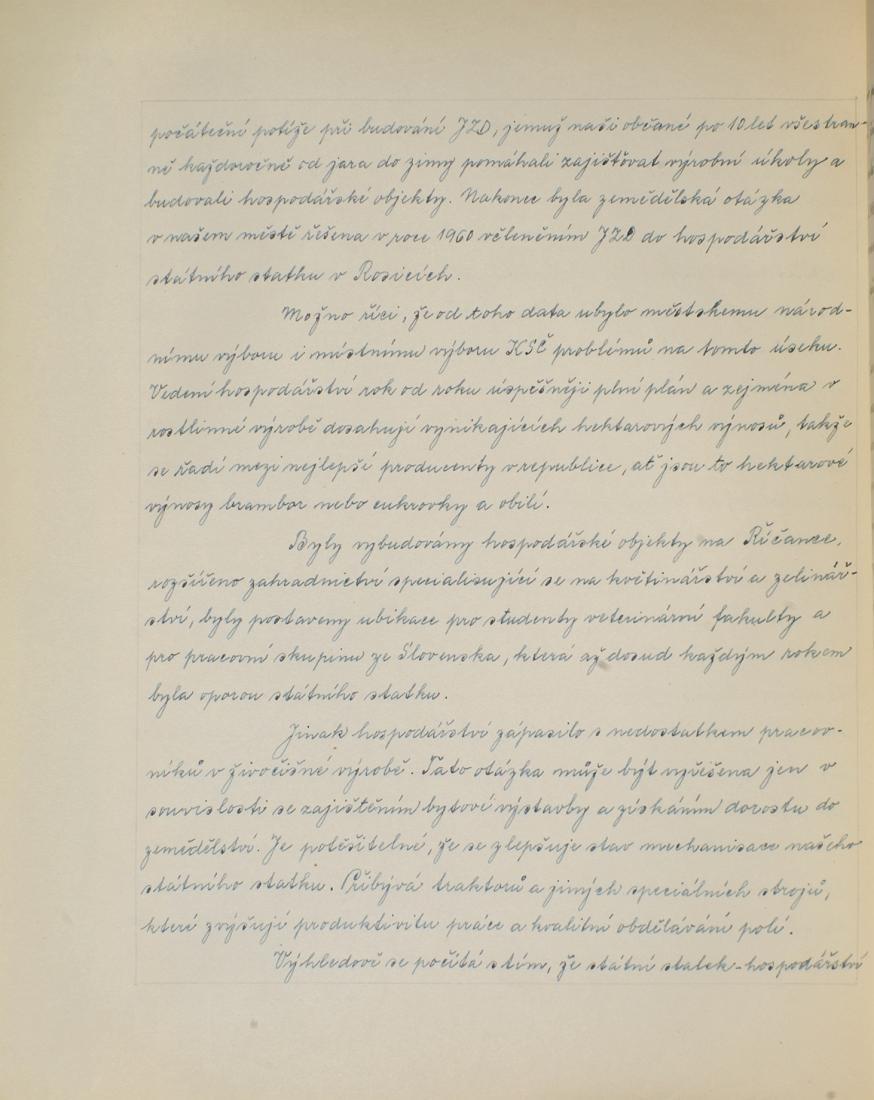 počáteční potíže při budování JZD, jemuž naši občané po 10 let všestran-
ně každoročně od jara do zimy pomáhali zajišťovat výrobní úkoly a
budovali hospodářské objekty. Nakonec byla zemědělská otázka
v našem městě řešena v roce 1960 včleněním JZD do hospodářství
státního statku v Rosicích.
Možno říci, že od toho data ubylo městskému národ-
nímu výboru i místnímu výboru KSČ problémů na tomto úseku.
Vedení hospodářství rok od roku úspěšněji plní plán a zejména v
rostlinné výrobě dosahují vynikajících hektarových výnosů, takže
se řadí mezi nejlepší producenty v republice, ať jsou to hektarové
výnosy brambor nebo cukrovky a obilí.
Byly vybudovány hospodářské objekty na Říčance,
rozšířeno zahradnictví specialisující se na květinářství a zelinář-
ství, byly postaveny ubikace pro studenty veterinární fakulty a
pro pracovní skupinu ze Slovenska, která až dosud každým rokem
byla oporou státního statku.
Jinak hospodářství zápasilo s nedostatkem pracov-
níků v živočišné výrobě. Tato otázka může být vyřešena jen v
souvislosti se zajištěním bytové výstavby a získáním dorostu do
zemědělství. Je potěšitelné, že se zlepšuje stav mechanisace našeho
státního statku. Přibývá traktorů a jiných speciálních strojů,
které zvyšují produktivitu práce a kvalitní obdělávání polí.
Výhledově se počítá s tím, že státní statek-hospodářství